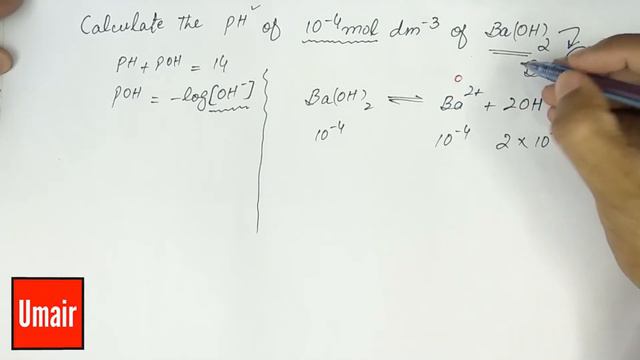 Calculate the PH of 10⁻⁴ mol dm⁻³ of Ba(OH)₂
PH + POH = 14
POH = -log[OH⁻]
Ba(OH)₂ ⇌ Ba²⁺ + 2OH
10⁻⁴ 10⁻⁴ 2 × 10
Umair